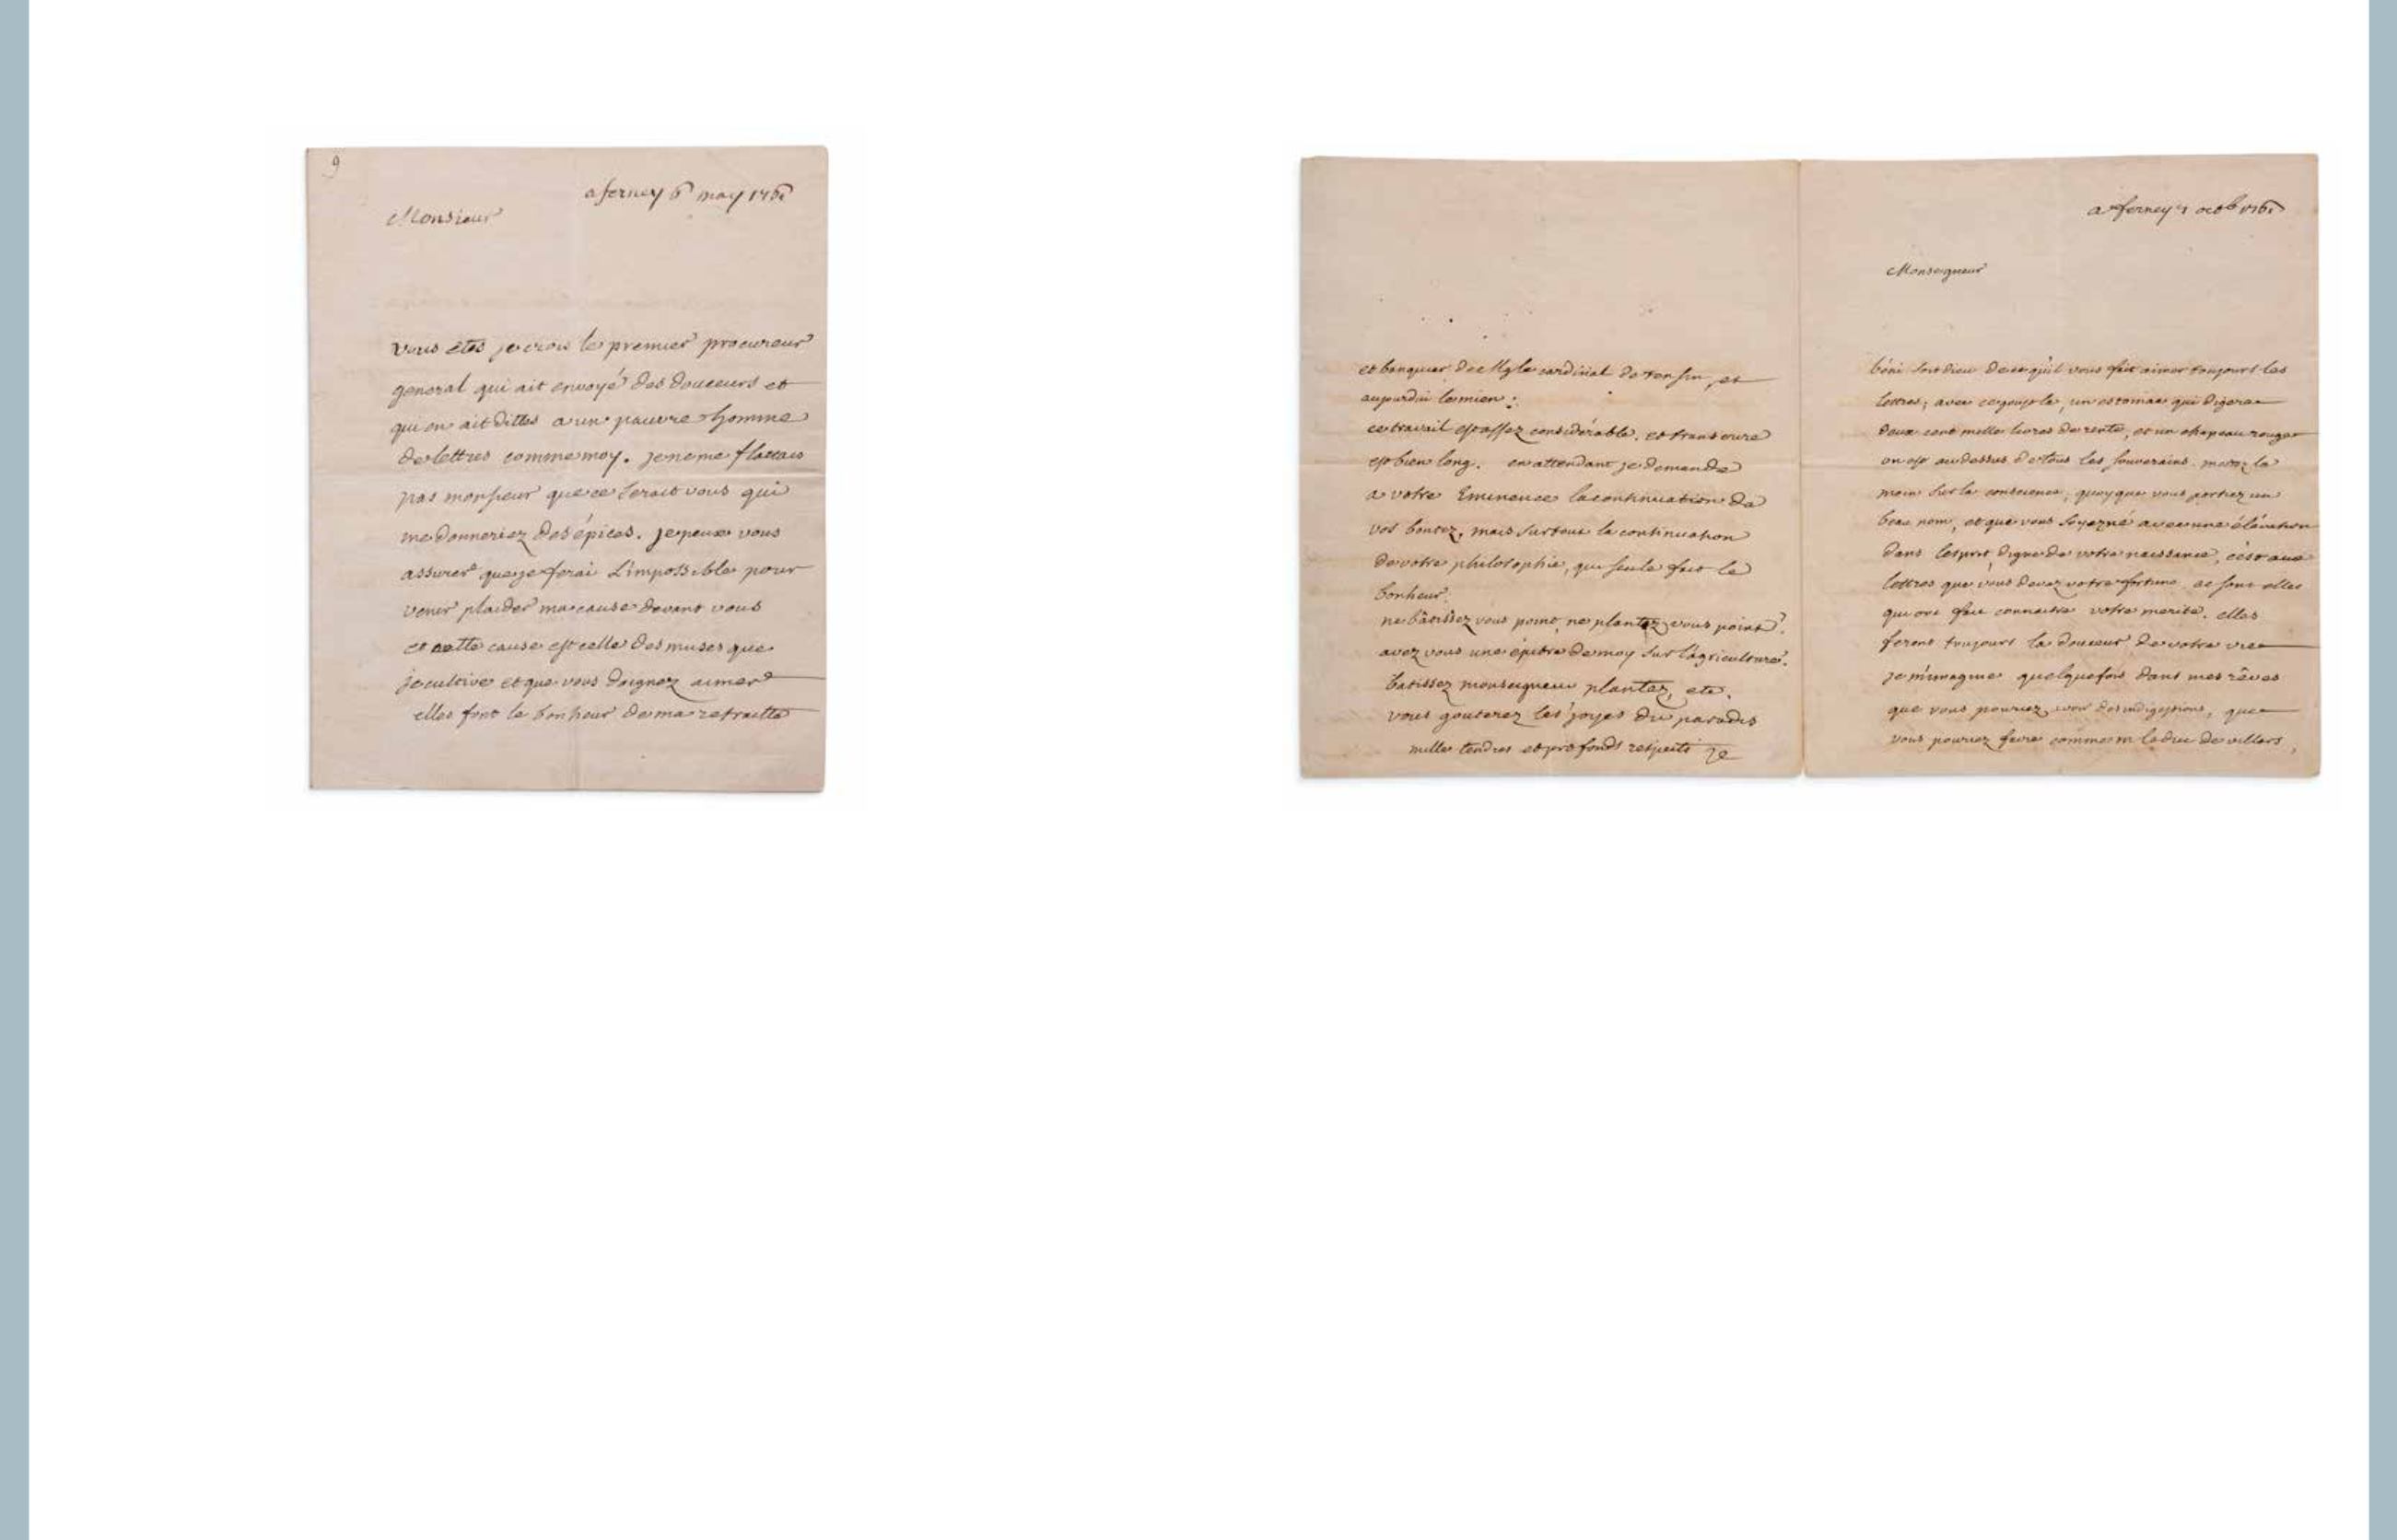 9
a ferney 6e may 1761
Monsieur
vous etes je crois le premier procureur
general qui ait envoyé des douceurs et
qui en ait dittes a un pauvre homme
de lettres comme moy. je ne me flattais
pas monsieur que ce serait vous qui
me donneriez des épices. je peux vous
assurer que je ferai L'impossible pour
venir plaider ma cause devant vous
et cette cause est celle des muses que
je cultive et que vous daignez aimer
elles font le bonheur de ma retraitte
et banquier de Mgr le cardinal de tensin, et
aujourdui le mien.
ce travail est assez considérable. et transcrire
est bien long. en attendant je demande
a votre Eminence la continuation de
vos bontez, mais surtout la continuation
de votre philosophie, qui seule fait le
bonheur.
ne bâtissez vous point, ne plantez vous point?
avez vous une épitre de moy sur l'agriculture?
batissez monseigneur plantez, etc.
vous gouterez les joyes du paradis
mille tendres et profonds respects
a ferney octb 1761
Monseigneur
béni soit dieu de ce qu'il vous fait aimer toujours les
lettres; avec ce goust la, un estomac qui digere
deux cent mille livres de rente, et un chapeau rouge
on est au dessus de tous les souverains. mettez la
main sur la conscience; quoyque vous portiez un
beau nom, et que vous soyez né avec une élévation
dans l'esprit digne de votre naissance, c'est aux
lettres que vous devez votre fortune. ce sont elles
qui ont fait connaitre votre merite. elles
feront toujours la douceur de votre vie
je m'imagine quelquefois dans mes rêves
que vous pouriez avoir des indigestions, que
vous pouriez faire comme m le duc de villars,